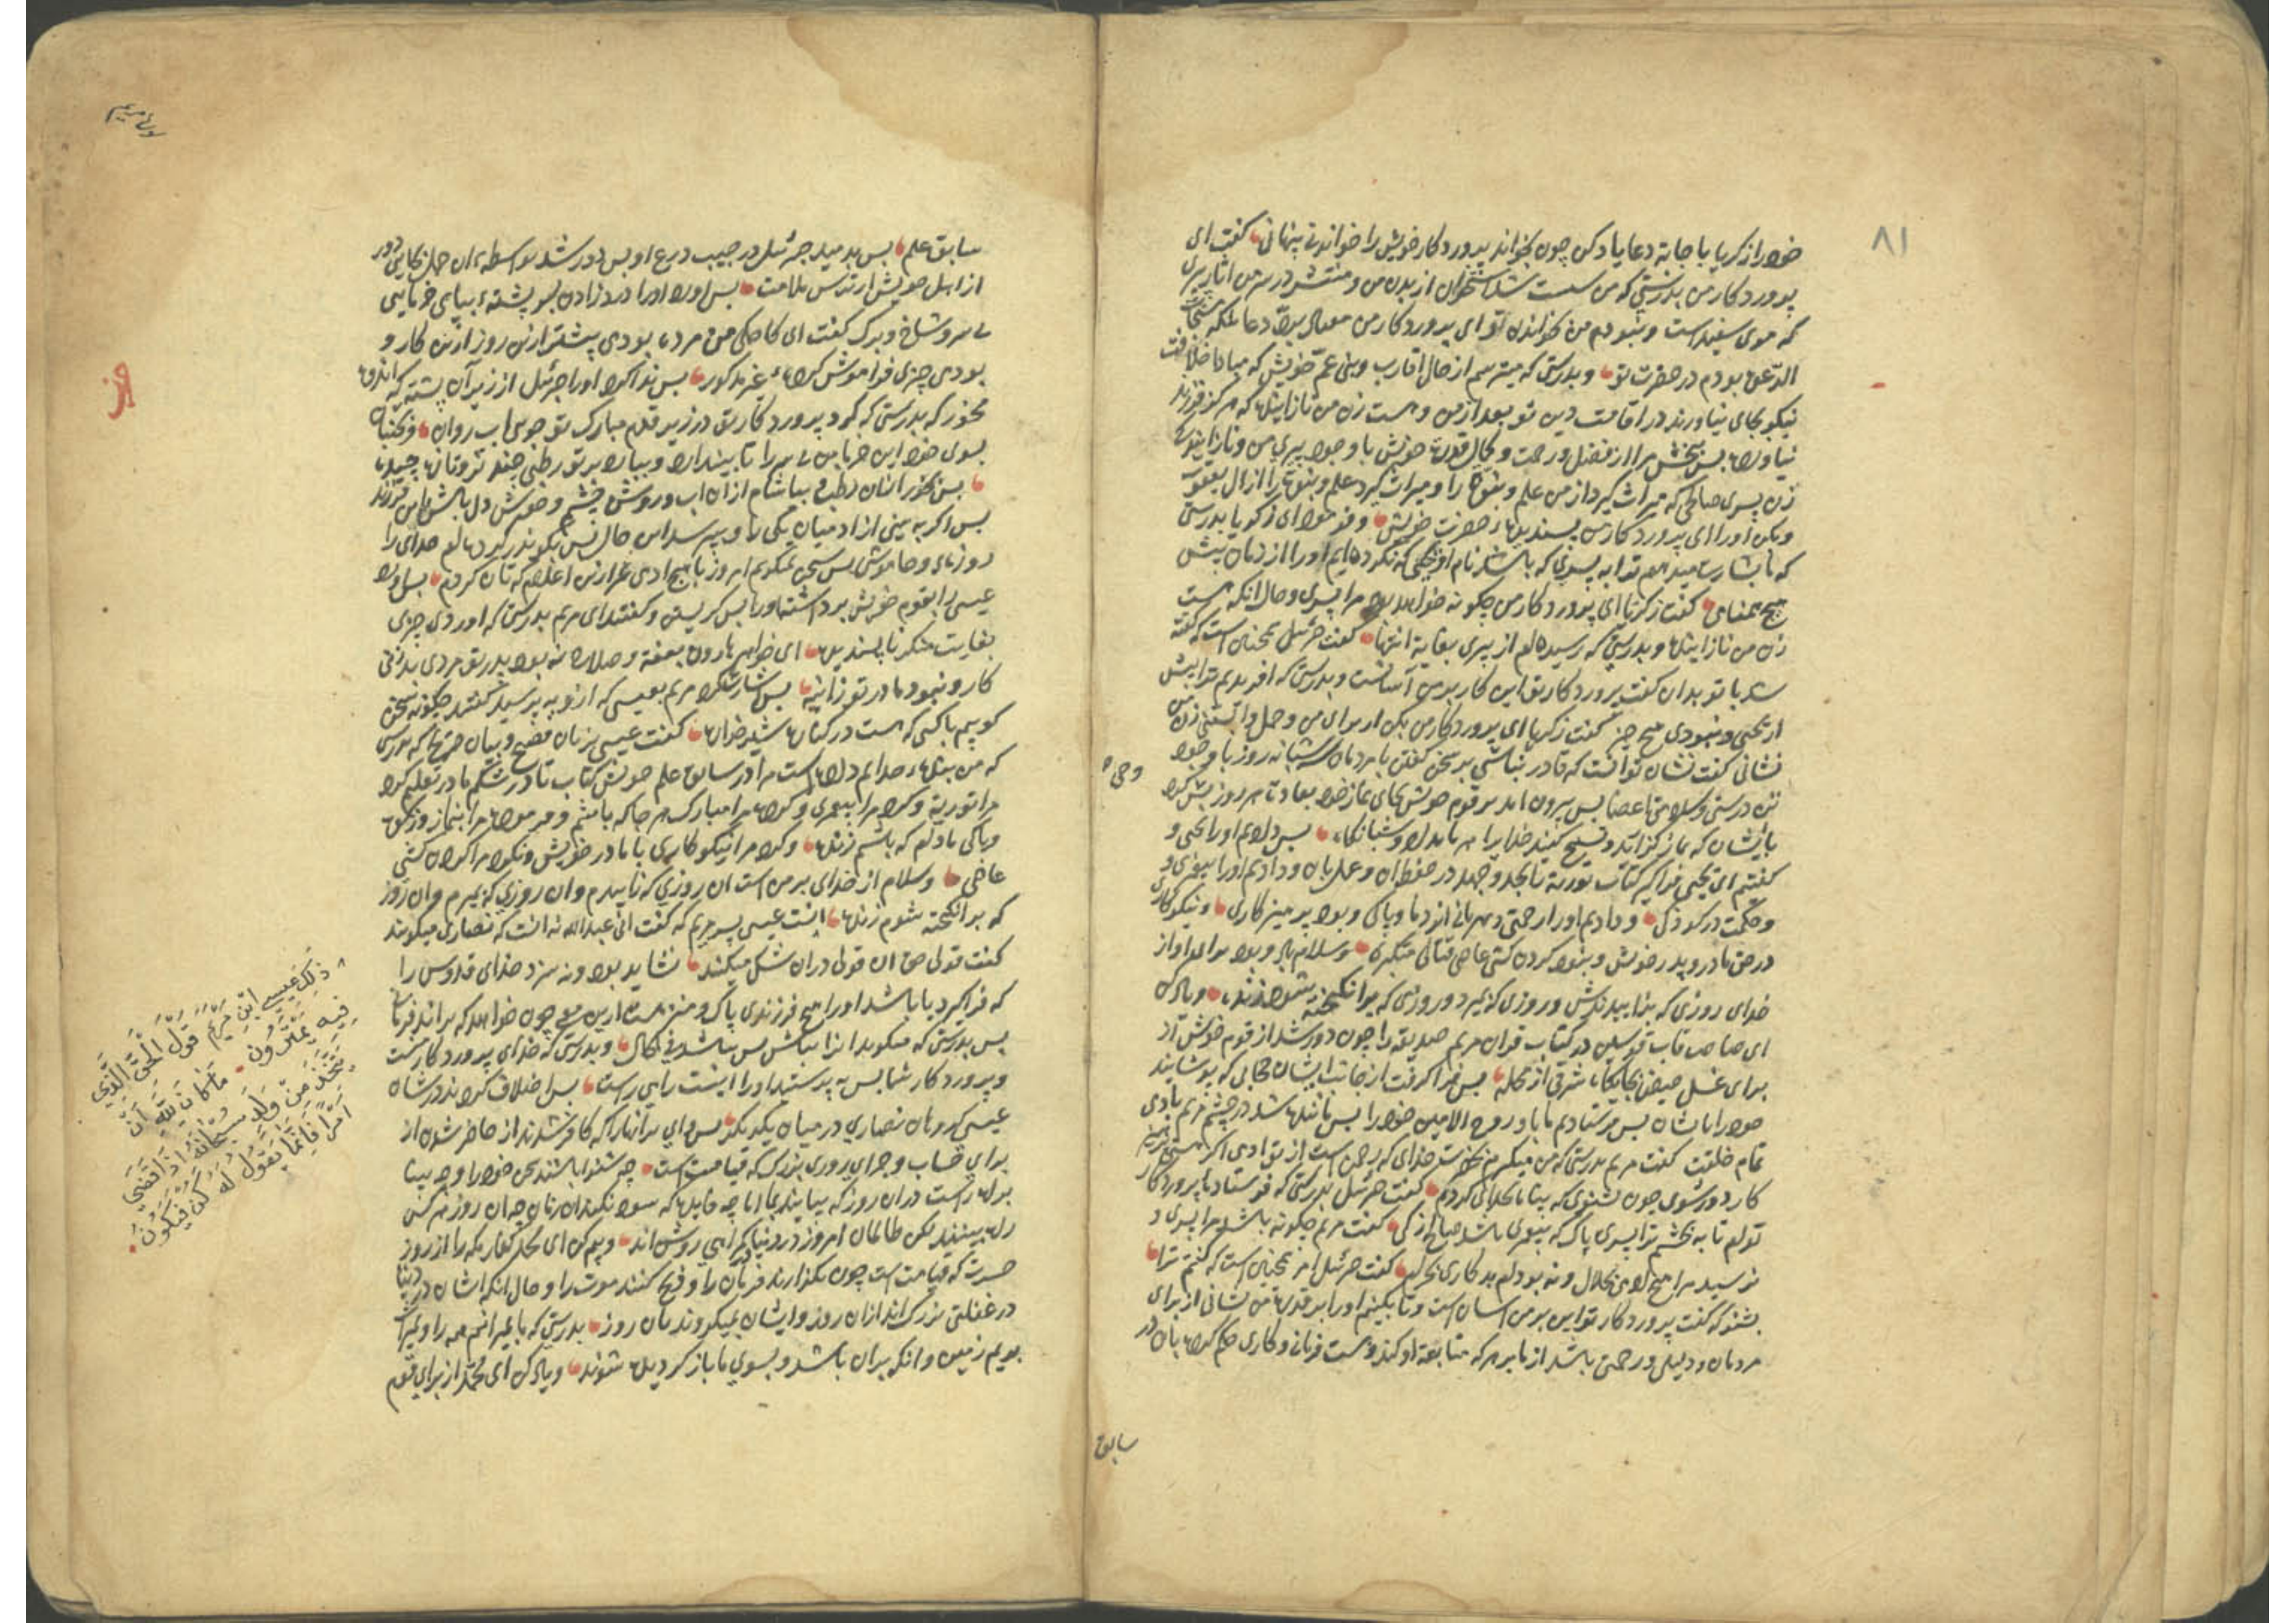 ۸۱
خود را زکریا با جابة دعا یاد کن چون بخواند پروردکار خویش را خواندن پنهانی کفت ای
پروردکار من بدرستی که من سست شد استخوان از بدن من و منتشر در سر من آثار پیری
که موی سفید است و نبودم من بخواندن تو ای پروردکار من دعا بلکه مستجاب
الدعوة بودم در حضرت تو و بدرستی که میترسم از حال اقارب و بنی عم خویش که مبادا خلافت
نیکو بجای نیاورند در اقامت دین تو بعد از من و هست زن من نازاینده که هرکز فرزند
نیاورده پس ببخش مرا از فضل و رحمت و کمال قدرت خویش با وجود پیری من و نازایندکی
زن پسری صالحی که میراث کیرد از من علم و نبوة را و میراث کیرد علم و نبوة را از آل یعقوب
و بکن او را ای پروردکار من پسندیده حضرت خویش و فرمود ای زکریا بدرستی
که ما بشارت میدهیم ترا به پسری که باشد نام او یحیی که نکرده‌ایم او را از زمان پیش
هیچ همنامی کفت زکریا ای پروردکار من چکونه خواهد بود مرا پسری و حال آنکه هست
زن من نازاینده و بدرستی که رسیده‌ام از پیری بغایة انتها کفت جبرئیل همچنین است که کفته
شد با تو بدان کفت پروردکار تو این کار بر من آسانست و بدرستی که افریدیم ترا پیش
از یحیی و نبودی هیچ چیز کفت زکریا ای پروردکار من بکن از برای من و حمل زن من
نشانی کفت نشان تو آنست که قادر نباشی بر سخن کفتن با مردمان سه شبانه روز با وجود
تن درستی و سلامتی اعضا پس بیرون امد بر قوم خویش بجای نماز خود بعادت هر روز پس کرد
با ایشان که نماز کزارید و تسبیح کنید خدایرا هر بامداد و شبانکاه پس دادیم او را یحیی و
کفتیم ای یحیی فرا کیر کتاب توریة تا بجد و جهد در حفظ ان و عمل بان و دادیم او را پیغمبری و
حکمت در کودکی و دادیم او را رحمتی و مهربانی از نزد ما و پاکی و بود پرهیزکاری و نیکوکاری
در حق مادر و پدر خویش و نبود کردن کشی عاصی قتالی متکبره و سلام باد و بود برای او از
خدای روزی که بزایدندش و روزی که بمیرد و روزی که برانکیخته شود زنده و یاد کن
ای صاحب قاب قوسین در کتاب قران مریم صدیقه را چون دور شد از قوم خویش
برای غسل حیض بجایکاه شرقی از محله پس فرا کرفت از جانب ایشان حجابی که پوشاند
خود را با شان پس فرستادیم ما باو روح الامین خود را پس مانند شد در چشم مریم بادمی
تمام خلقت کفت مریم بدرستی که من میکریزم بحضرت خدای که رحمن است از تو ادمی اکر هستی پرهیز
کار دور شوی چون بشنوی که پناه بخدای کردم کفت جبرئیل بدرستی که فرستاده پروردکار
توام تا به بخشم ترا پسری پاک که پیغمبری باشد صالح ازکی کفت مریم چکونه باشد مرا پسری و
نرسید مرا هیچ ادمی بحلال و نه بودم بدکاری بحرام کفت جبرئیل امر همچنین است که کفتم ترا
بشنو که کفت پروردکار تو این بر من اسان است و تا بکنیم او را بر قدرت من نشانی از برای
مردمان و دلیلی و رحمتی باشد از ما بر هر که متابعة او کند و هست فرمان و کاری حکم کرده بان در
سابق
سورة مریم
سابق علم پس بدمید جبرئیل در جیب درع او پس دور شد بواسطه ان حمل بجایی دور
از اهل خویش از ترس ملامت پس اورد او را درد زادن بسوی پشته بپای خرمایی
بی سر و شاخ و برک کفت ای کاچکی من مرده بودی پیشتر ازین روز ازین کار و
بودمی چیزی فراموش کرده غیر مذکور پس ندا کرد او را جبرئیل از زیر آن پشته که اندوه
مخور که بدرستی که کرد پروردکار تو در زیر قدم مبارک تو جوی اب روان و بجنبان
بسوی خود این خرما بن بی سر را تا بیندازد و ببارد بر تو رطبی چند تر و تازه چیده
پس بخور ازان رطب و بیاشام ازان اب و روشن چشم و خوش دل باش باین فرزند
پس اکر به بینی از ادمیان یکی را و پرسد این حال پس بکو نذر کرده‌ام خدای را
روزه و خاموشی پس سخن نمیکویم امروز با هیچ ادمی غیر ازین اعلام که تان کردم پس اورد
عیسی را بقوم خویش برداشته او را پس کریستن و کفتند ای مریم بدرستی که اوردی چیزی
بغایت منکر ناپسندیده ای خواهر هارون بعفة و صلاح نه بود پدر تو مردی بد زانی
کار و نبود مادر تو زانیه پس اشارت کرد مریم بعیسی که ازو به پرسید کفتند چکونه سخن
کوییم با کسی که هست در کهواره شیرخواره کفت عیسی بزبان فصیح و بیان صریح که بدرستی
که من بنده خدایم داده است مرا در سابق علم خویش کتاب تا در شکم مادر تعلیم کرد
مرا توریة و کرد مرا پیغمبری و کرد مرا مبارک هر جا که باشم و فرموده مرا بنماز و زکوة
و پاکی مادام که باشم زنده و کرد مرا نیکوکاری با مادر خویش و نکرد مرا کردن کشی
عاصی و سلام از خدای بر من است ان روزی که زاییدم و ان روزی که بمیرم و ان روز
که برانکیخته شوم زنده اینست عیسی پسر مریم که کفت انی عبد الله نه انست که نصاری میکویند
کفت قولی حق ان قولی دران شک میکنند نشاید بود و نه سزد خدای قدوس را
که فرا کیرد یا باشد او را هیچ فرزندی پاک و منزه است ازین چون خواهد که براند فرمانی
پس بدرستی که میکوید انرا بباش پس بباشد فی الحال و بدرستی که خدای پروردکار منست
و پروردکار شما پس به پرستید او را اینست راه راست پس اختلاف کردند در شان
عیسی کروهان نصاری در میان یکدیکر پس وای مر آنهارا که کافر شدند از حاضر شدن از
برای حساب و جزای روزی بزرک که قیامت است چه شنوا باشند حق خود را و چه بینا
براه راست دران روز که بیایند بما اما چه فایده که سود نکند ان زمان چه ان روز هر کس
راه بیند لکن ظالمان امروز در دنیا در کمراهی روشن اند و بیم کن ای محمد کفار مکه را از روز
حسرت که قیامت است چون بکذارند فرمان را و ذبح کنند موت را و حال آنکه ایشان در دنیا
در غفلتی بزرک اند ازان روز و ایشان نمیکروند بان روز بدرستی که ما بمیرانیم همه را و میراث
بریم زمین و انکه بران باشد و بسوی ما باز کردیده شوند و یاد کن ای محمد از برای قوم
ذَلِكَ عِيسَى ابْنُ مَرْيَمَ قَوْلَ الْحَقِّ الَّذِي
فِيهِ يَمْتَرُونَ مَا كَانَ لِلَّهِ أَنْ
يَتَّخِذَ مِنْ وَلَدٍ سُبْحَانَهُ إِذَا قَضَى
أَمْرًا فَإِنَّمَا يَقُولُ لَهُ كُنْ فَيَكُونُ